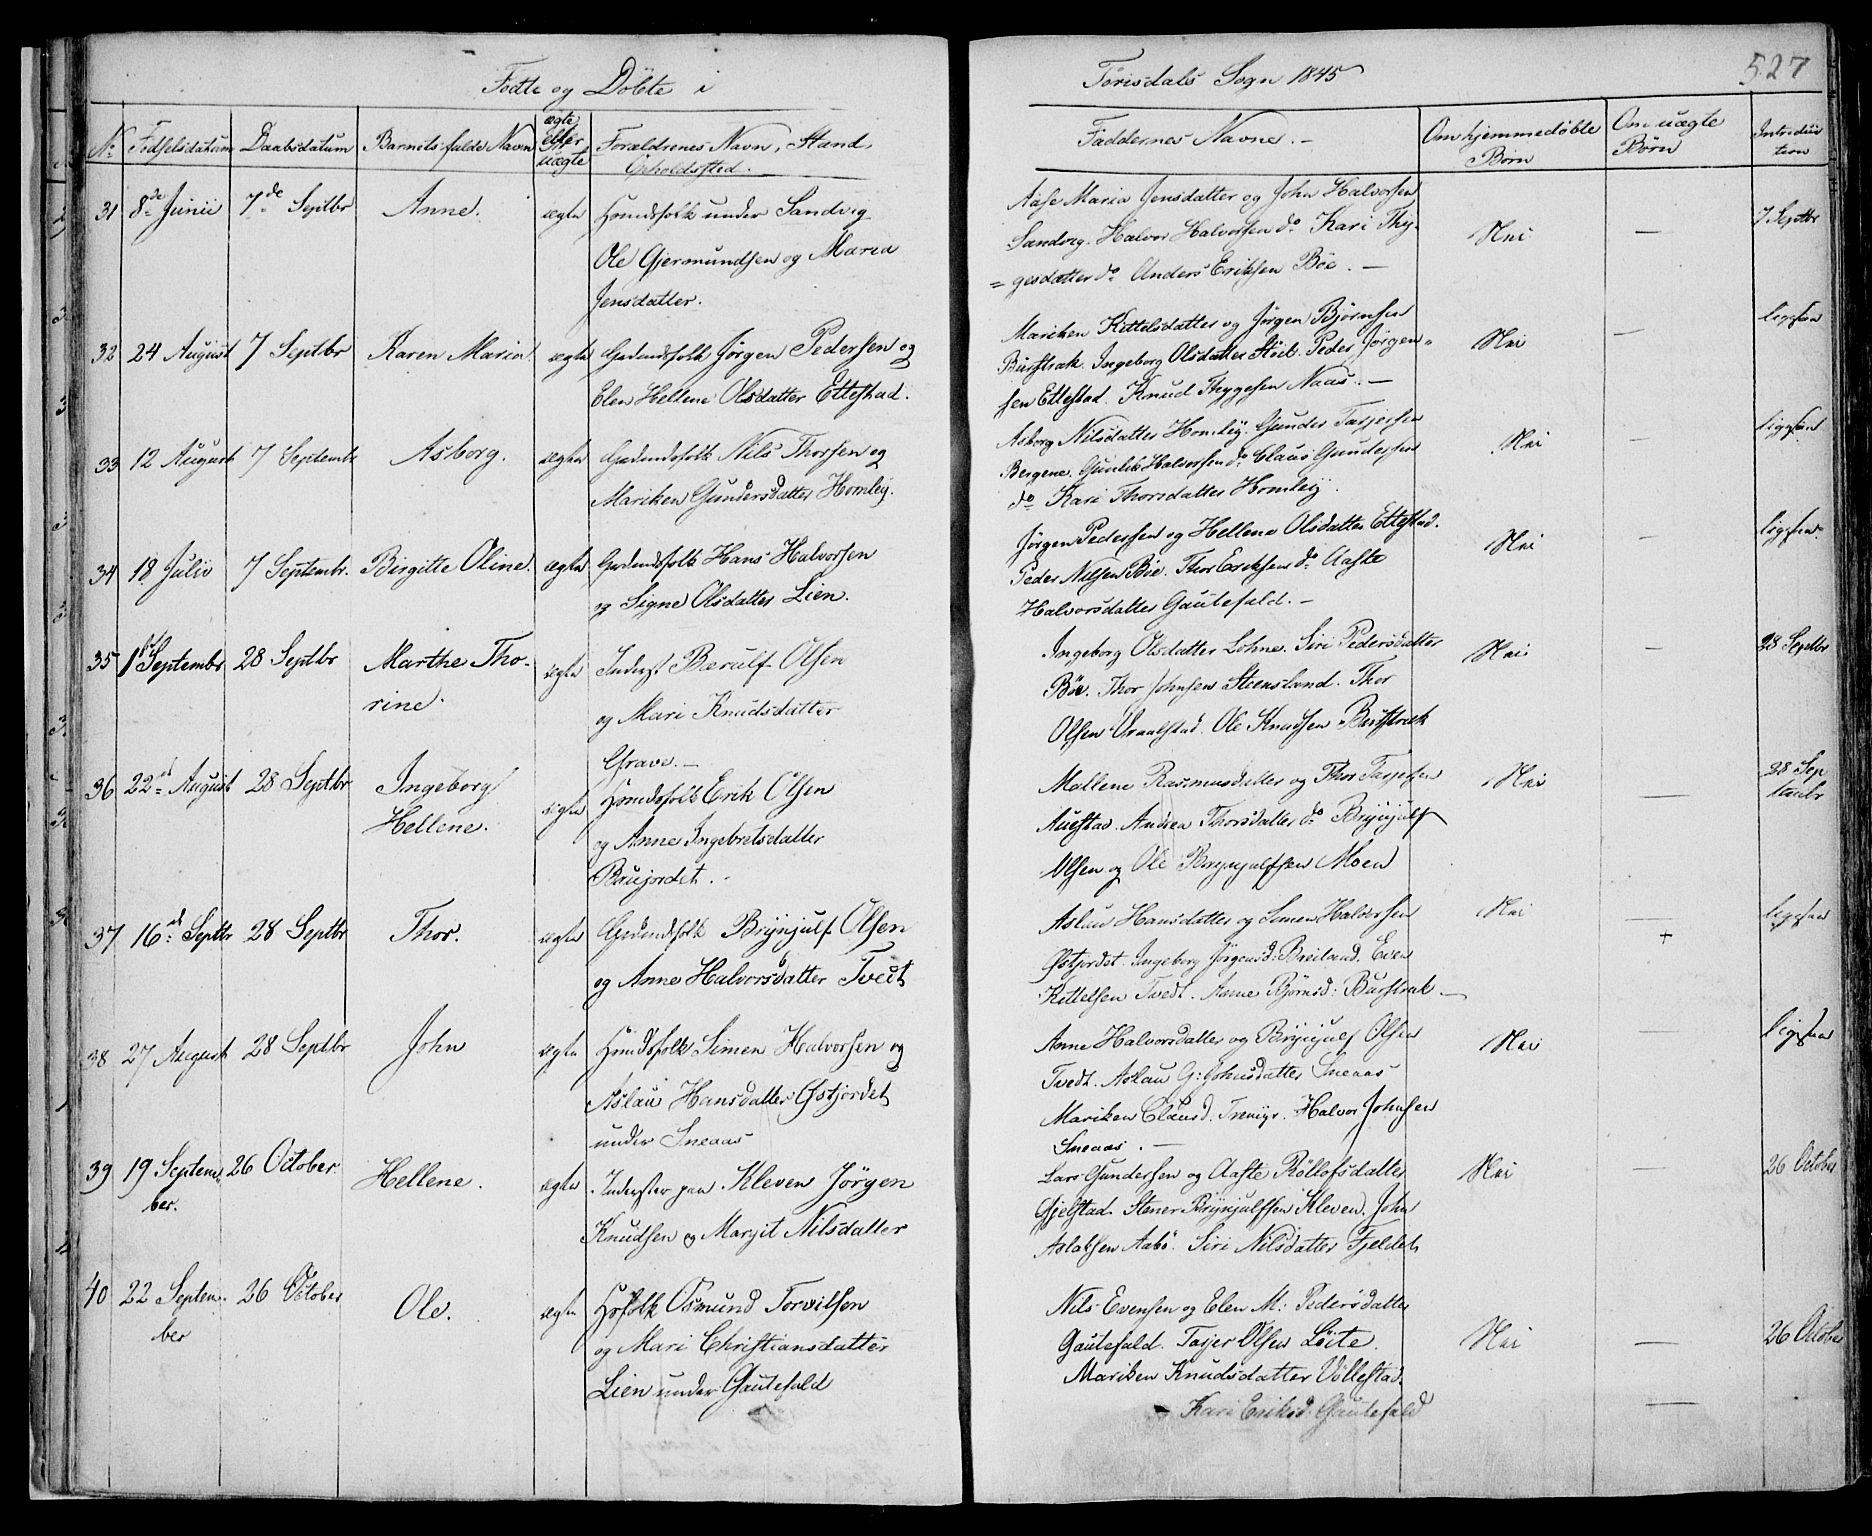 Fødte og Döbte i
Törisdals Sogn 1845
527
No Fødselsdatum Daabsdatum Barnets fulde Navn ægte eller uægte Forældrenes Navn, Stand, Opholdssted.
Faddernes Navne. Om hjemmedøbte Børn Om uægte Børn Introduction
31 8de Junii 7de Septbr Anne. ægte Huusfolk under Sandvig
Ole Gjermundsen og Maria
Jensdatter.
Aase Maria Jensdatter og John Halvorsen
Sandvig. Halvor Halvorsen do Kari Thy-
gesdatter do Anders Eriksen Böe. —
Nei — 7 Septbr
32 24 August 7 Septbr Karen Maria. ægte Gaardmdsfolk Jörgen Pedersen og
Elen Hellene Olsdatter Ettestad.
Mariken Kittelsdatter og Jörgen Björnsen
Burstrak. Ingeborg Olsdatter Peder Jörgen-
sen Ettestad. Knud Thygesen Naas. —
Nei — ligesaa
33 12 August 7 Septembr Asborg. ægte Gaardmdsfolk Nils Thorsen og
Mariken Gundersdatter Homleij.
Asborg Nilsdatter Homleij. Gunder Tarjeisen
Bergene. Gunlik Halvorsen do Claus Gundersen
do Kari Thorsdatter Homleij.
Nei — ligesaa
34 18 Julii 7 Septembr. Birgitte Oline. ægte Gaardmdsfolk Hans Halvorsen
og Signe Olsdatter Lien.
Jörgen Pedersen og Hellene Olsdatter Ettestad.
Peder Nilsen Böe. Thor Eriksen do Aaste
Halvorsdatter Gautefald. —
Nei — ligesaa
35 1st Septembr 28 Septbr Marthe Tho-
rine. ægte Inderst Bærulf Olsen
og Mari Knudsdatter
Grave. —
Ingeborg Olsdatter Lohne. Siri Pedersdatter
Böe. Thor Johnsen Steensland. Thor
Olsen Vraalstad. Ole Knudsen Burstrak
Nei — 28 Septbr
36 22d August 28 Septbr Ingeborg
Hellene. ægte Huusmdsfolk Erik Olsen
og Anne Ingebretsdatter
Brujordet. —
Mallene Rasmusdatter og Thor Tarjesen
Austad. Andrea Thorsdatter do Brynjulf
Olsen og Ole Brynjulfsen Moen
Nei — 28 Sep
tembr
37 16d Septbr 28 Septbr Thor. ægte Gaardmdsfolk Brynjulf Olsen
og Anne Halvorsdatter Tvedt
Aslau Hansdatter og Simen Halvorsen
Østjordet. Ingeborg Jörgensd: Breiland. Even
Kittelsen Tvedt. Anne Björnsd: Burstrak —
Nei — + ligesaa
38 27 August 28 Septbr John ægte Huusmdsfolk Simen Halvorsen og
Aslau Hansdatter Østjordet
under Sneaas
Anne Halvorsdatter og Brynjulf Olsen
Tvedt. Aslau G: Johnsdatter Sneaas
Mariken Clausd. Halvor Johnsen
Sneaas. —
Nei — ligesaa
39 19 Septem-
ber. 26 October. Hellene. ægte Inderster paa Kleven Jörgen
Knudsen og Margit Nilsdatter
Lars Gundersen og Aaste Röllofsdatter
Gjelstad. Stener Brynjulfsen Kleven. John
Aslaksen Aabö. Siri Nilsdatter Fjeldet
Nei — 26 October
40 22 Septem-
ber 26 October Ole. ægte Hsfolk Osmund Torvilsen
og Mari Christiansdatter
Lien under Gautefald
Nils Evensen og Elen M: Pedersdatter
Gautefald. Tarjer Olsen Löite.
Mariken Knudsdatter Völlestad.
— Kari Eriksd. Gautefald
Nei — 26 October